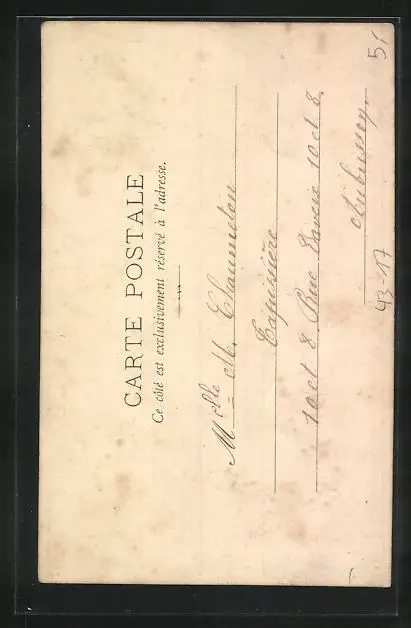 CARTE POSTALE
Ce côté est exclusivement réservé à l'adresse.
Melle M. Chaumeton
Tapissière
10 et 8 Rue Vaveix 10 et 8.
Aubusson
43-17
5/